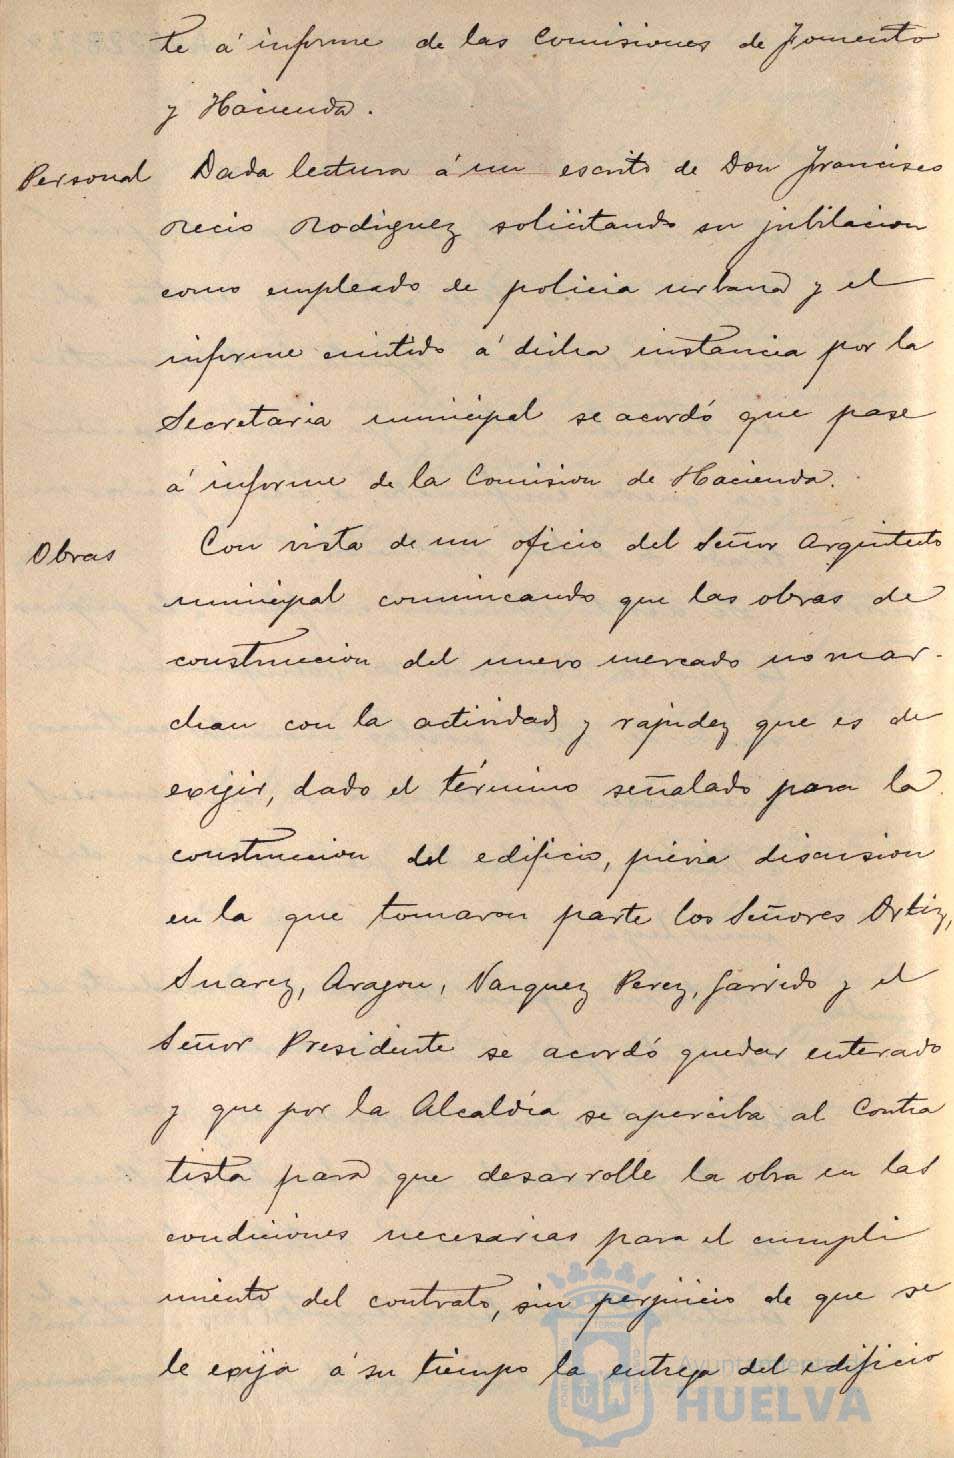 te á informe de las Comisiones de Fomento
y Hacienda.
Personal Dada lectura á un escrito de Don Francisco
Recio Rodriguez solicitando su jubilacion
como empleado de policia urbana y el
informe emitido á dicha instancia por la
Secretaria municipal se acordó que pase
á informe de la Comision de Hacienda.
Obras Con vista de un oficio del Señor Arquitecto
municipal comunicando que las obras de
construccion del nuevo mercado no mar-
chan con la actividad y rapidez que es de
exijir, dado el término señalado para la
construccion del edificio, prévia discusion
en la que tomaron parte los Señores Ortiz,
Suarez, Aragon, Vazquez Perez, Garrido y el
Señor Presidente se acordó quedar enterado
y que por la Alcaldía se aperciba al Contra
tista para que desarrolle la obra en las
condiciones necesarias para el cumpli
miento del contrato, sin perjuicio de que se
le exija á su tiempo la entrega del edificio
Ayuntamiento
HUELVA